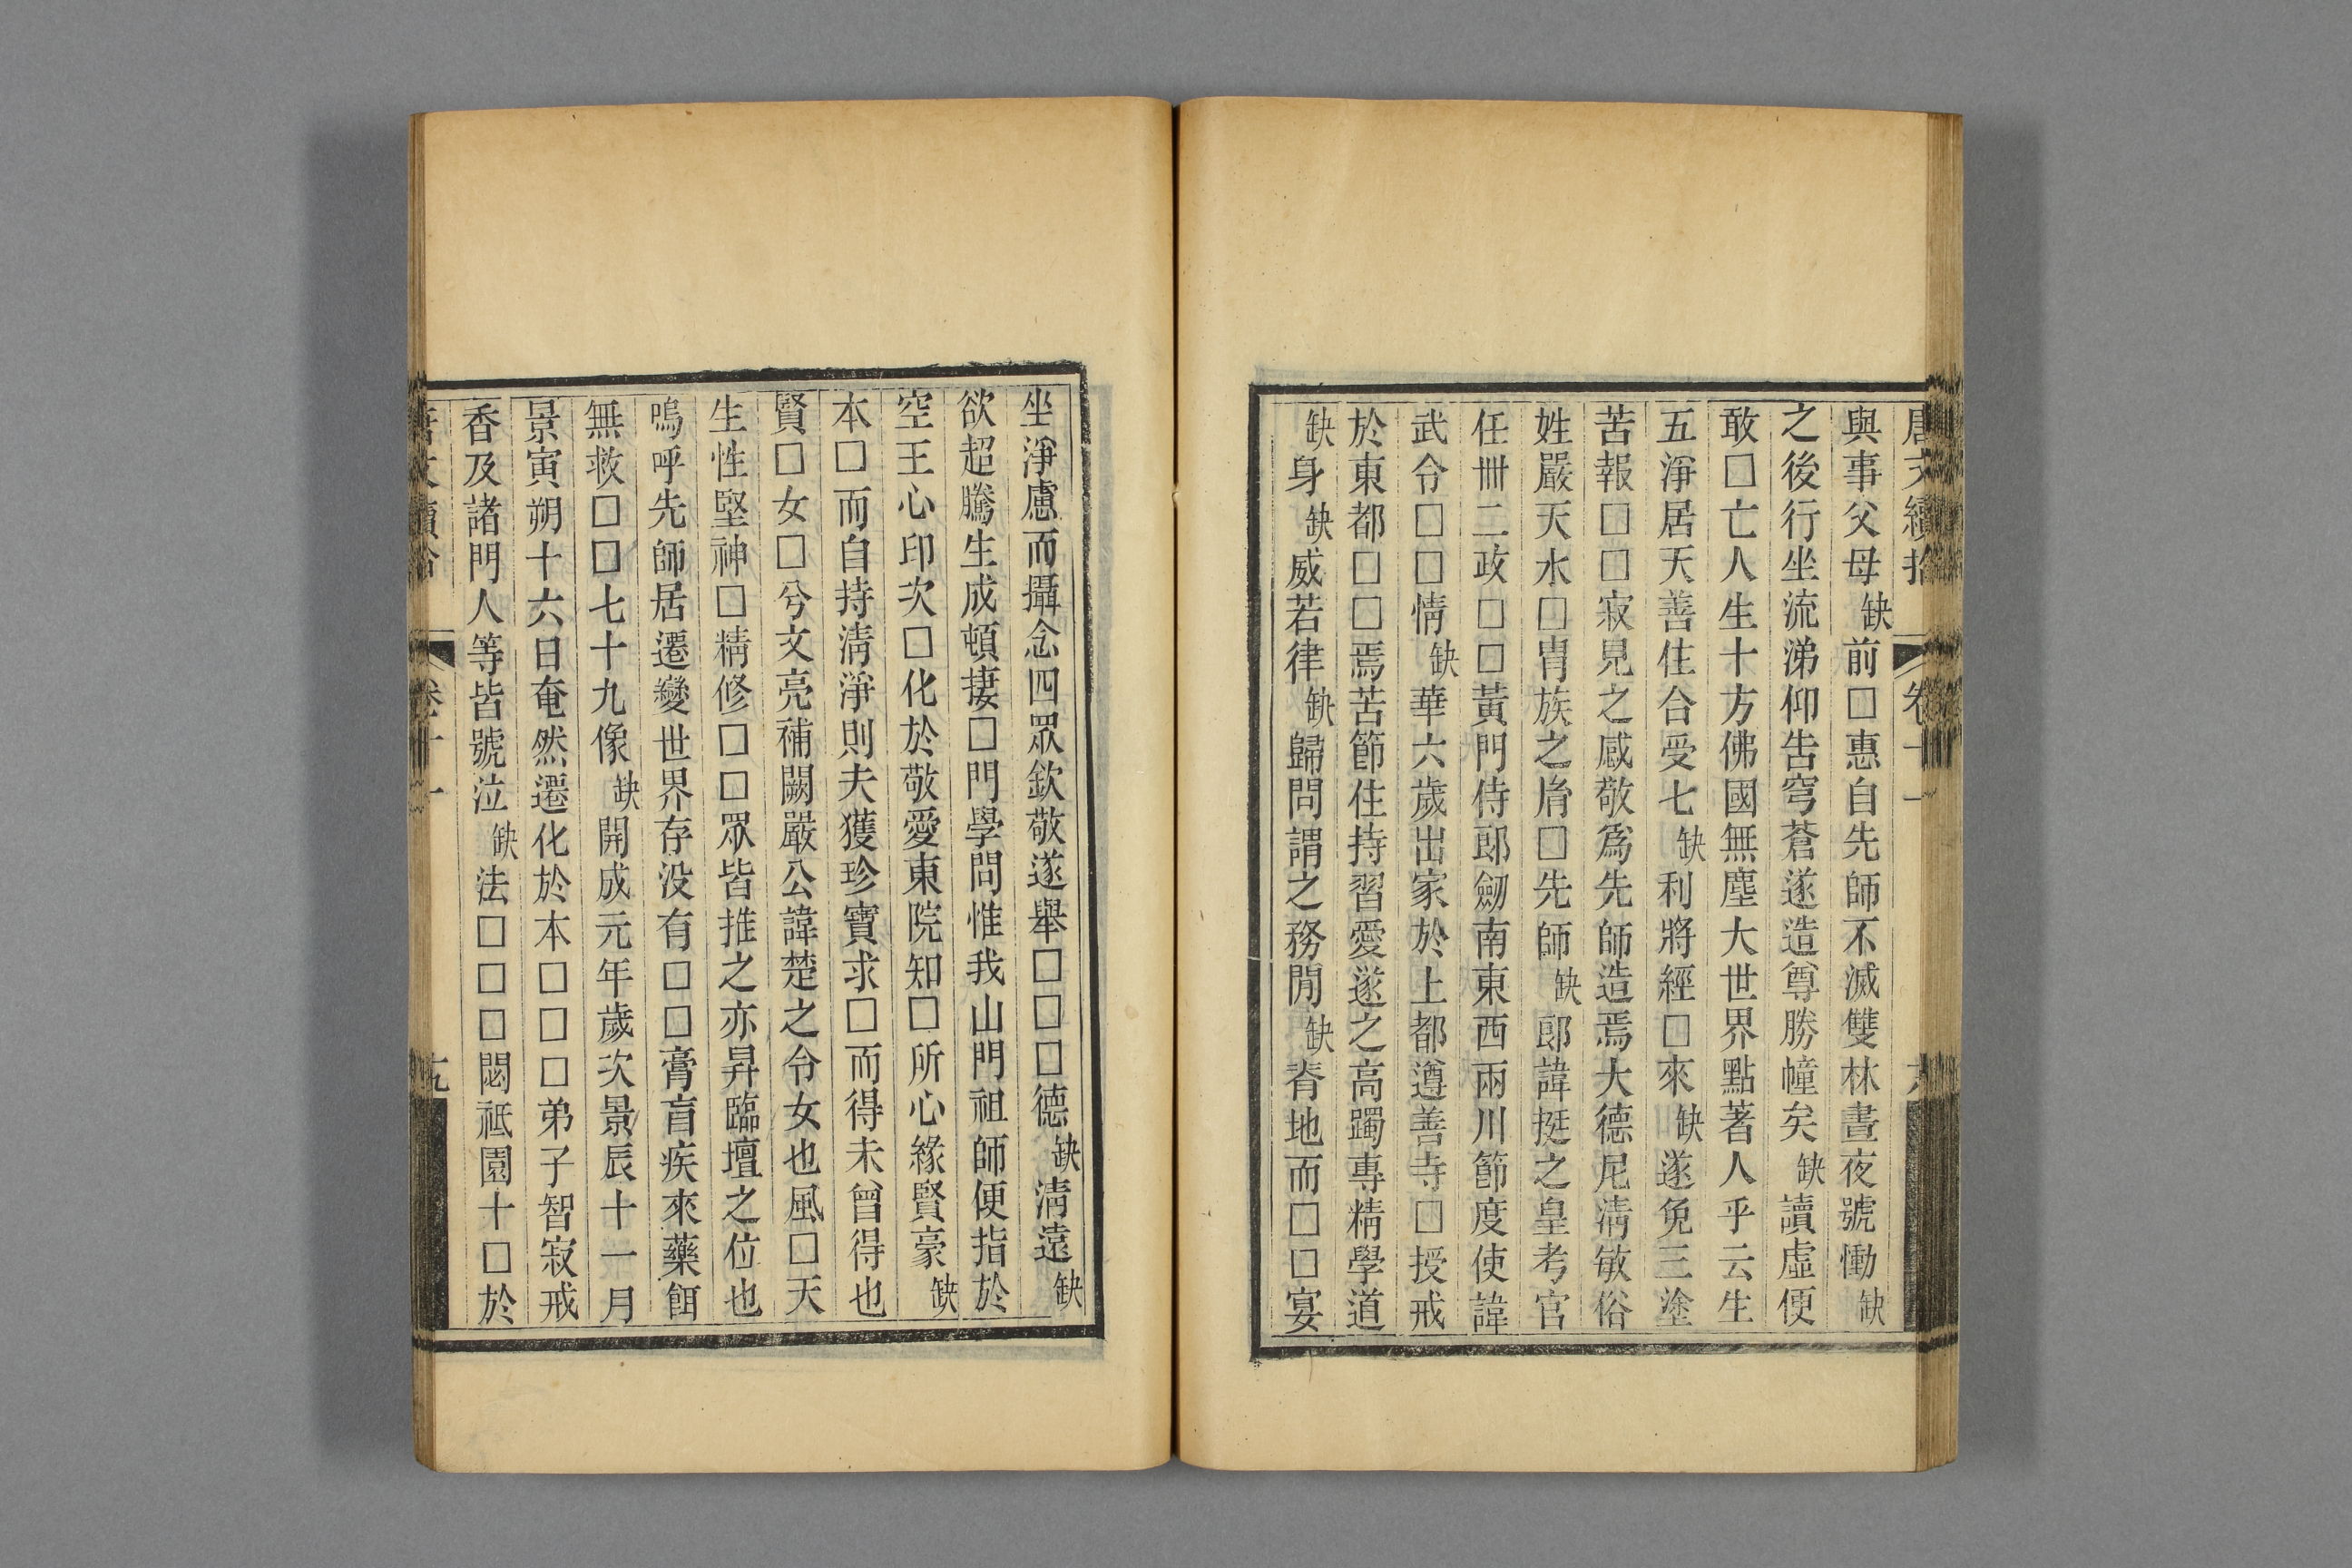 唐文續拾 卷十一
與事父母缺前□惠自先師不滅雙林晝夜號慟缺
之後行坐流涕仰告穹蒼遂造尊勝幢矣缺讀虛便
敢□亡人生十方佛國無塵大世界點著人乎云生
五淨居天善住合受七缺利將經□來缺遂免三塗
苦報□□寂見之感敬爲先師造焉大德尼淸敏俗
姓嚴天水□胄族之胤□先師缺郎諱挺之皇考官
任卌二政□□□黃門侍郎劒南東西兩川節度使諱
武令□□情缺華六歲出家於上都遵善寺□授戒
於東都□□焉苦節住持習愛遂之高躅專精學道
缺身缺威若律缺歸問謂之務閒缺脊地而□□宴
坐淨慮而攝念四眾欽敬遂舉□□□德缺淸遠缺
欲超騰生成頓捿□門學問惟我山門祖師便指於
空王心印次□化於敬愛東院知□所心緣賢豪缺
本□而自持淸淨則夫獲珍寶求□而得未曾得也
賢□女□兮文亮補闕嚴公諱楚之令女也風□天
生性堅神□精修□□眾皆推之亦昇臨壇之位也
嗚呼先師居遷變世界存没有□□膏肓疾來藥餌
無救□□七十九像缺開成元年歲次景辰十一月
景寅朔十六日奄然遷化於本□□□弟子智寂戒
香及諸門人等皆號泣缺法□□□閟祗園十□於
唐文續拾 卷十一